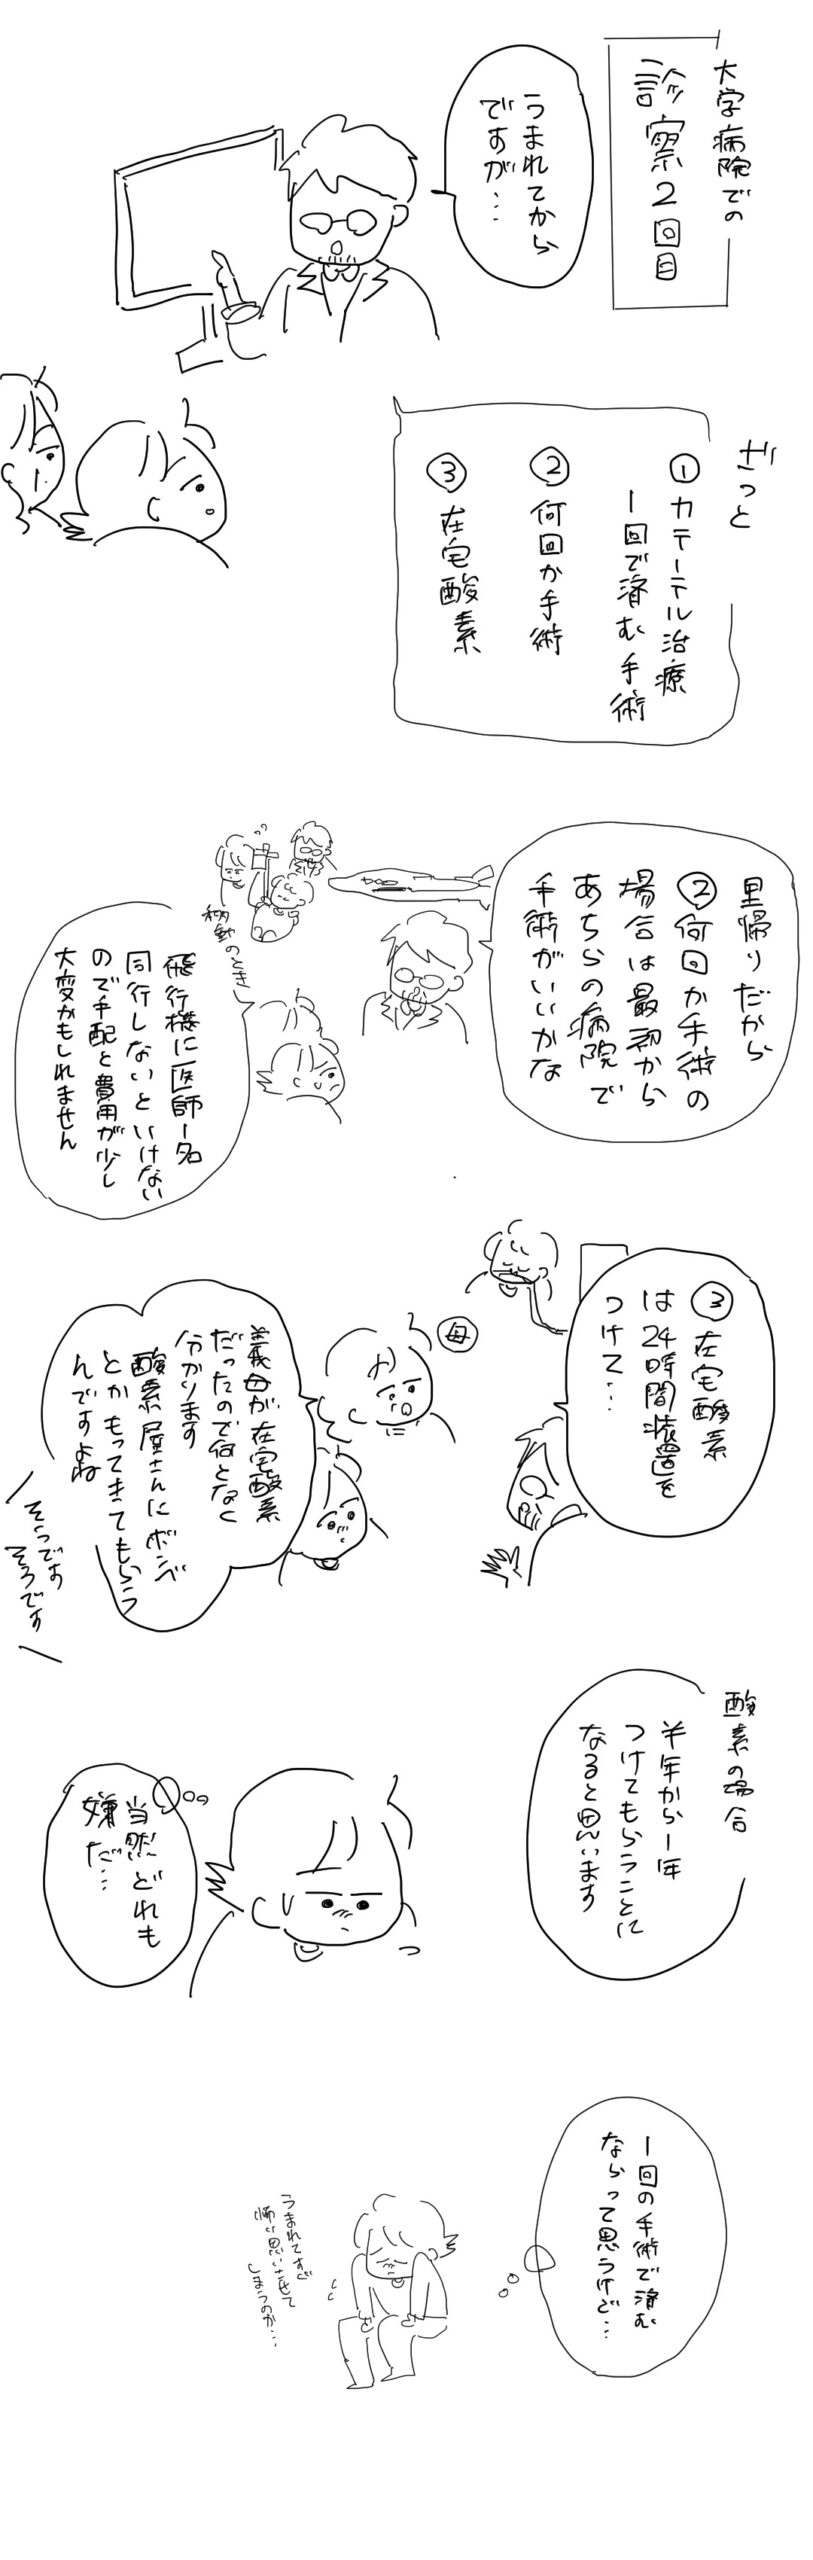 大学病院での
診察2回目
うまれてから
ですが…
ざっと
①カテーテル治療
1回で済む手術
②何回か手術
③在宅酸素
里帰りだから
②何回か手術の
場合は最初から
あちらの病院で
手術がいいかな
移動のとき
飛行機に医師1名
同行しないといけない
ので手配と費用が少し
大変かもしれません
③在宅酸素
は24時間装置を
つけて…
母
義母が在宅酸素
だったので何となく
分かります
酸素屋さんにボンベ
とかもってきてもらう
んですよね
そうです
そうです
酸素の場合
半年から1年
つけてもらうことに
なると思います
当然どれも
嫌だ…
1回の手術で済む
ならって思うけど…
うまれてすぐ
怖い思いさせて
しまうのか…